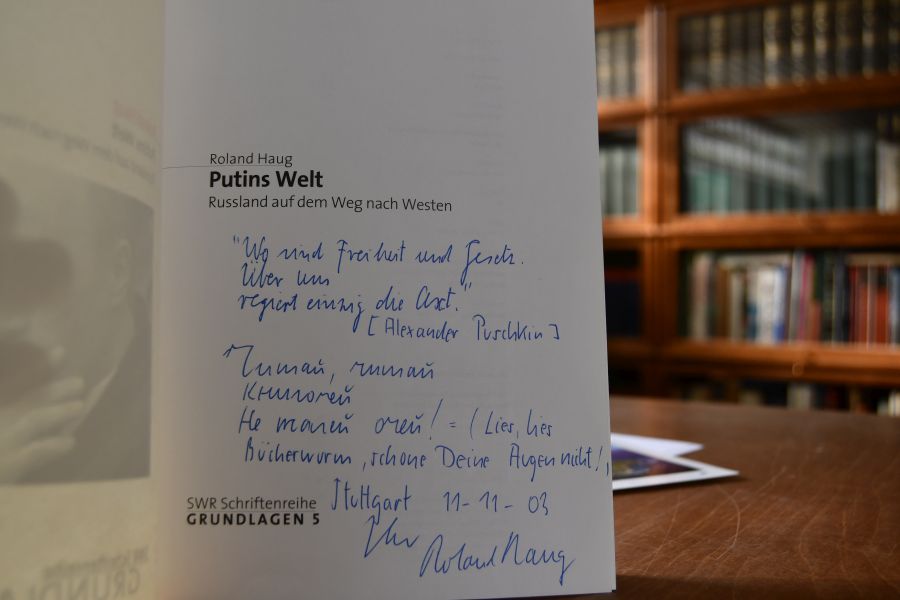 Roland Haug
Putins Welt
Russland auf dem Weg nach Westen
"Wo sind Freiheit und Gesetz.
Über uns
regiert einzig die Axt."
[Alexander Puschkin]
Читай, читай
Книгочей
Не жалей очей! = (Lies, lies
Bücherwurm, schone Deine Augen nicht!,
Stuttgart 11-11-03
Ihr
Roland Haug
SWR Schriftenreihe
GRUNDLAGEN 5